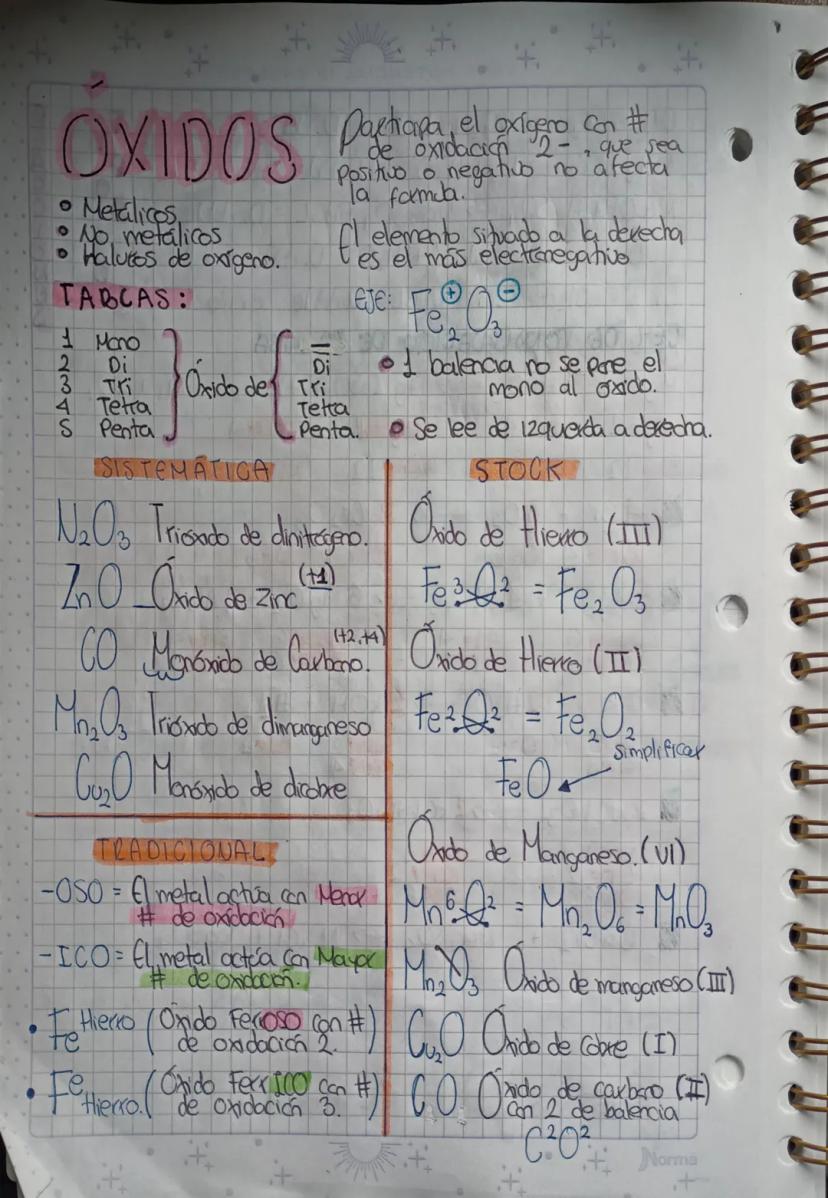 ÓXIDOS
Participa el oxígeno con #
de oxidación 2-, que sea
positivo o negativo no afecta
la formula.
• Metálicos
• No metálicos
• Haluros de oxígeno.
El elemento situado a la derecha
es el más electronegativo
TABLAS:
EJE: Fe₂⊕O₃⊖
1 Mono
2 Di
3 Tri
4 Tetra
5 Penta
Óxido de
=
Di
Tri
Tetra
Penta.
• 1 balencia no se pone el
mono al óxido.
• Se lee de izquerda a derecha.
SISTEMÁTICA
N₂O₃ Trioxido de dinitrógeno.
ZnO Óxido de Zinc (+1)
CO Monóxido de Carbono. (+2,+4)
Mn₂O₃ Trióxido de dimanganeso
Cu₂O Monóxido de dicobre
STOCK
Óxido de Hierro (III)
Fe³O² = Fe₂O₃
Óxido de Hierro (II)
Fe²O² = Fe₂O₂
simplificar
FeO
Óxido de Manganeso. (VI)
Mn⁶O² = Mn₂O₆ = MnO₃
Mn₂O₃ Óxido de manganeso (III)
Cu₂O Óxido de cobre (I)
CO Óxido de carbono (II)
con 2 de balencia
C²O²
TRADICIONAL
-OSO = El metal actúa con Menor
# de oxidación
-ICO = El metal actúa con Mayor
# de oxidación.
• Fe Hierro (Óxido FerrOSO con #
de oxidación 2.)
• Fe Hierro. (Óxido FerrICO con #
de oxidación 3.)
Norma